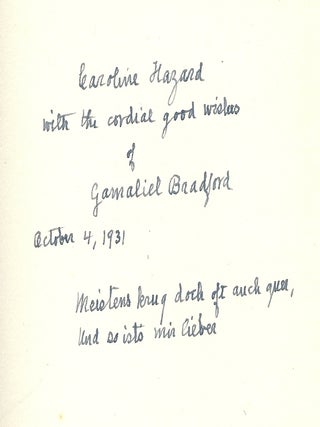 Caroline Hazard
with the cordial good wishes
of
Gamaliel Bradford
October 4, 1931
Meistens krug doch oft auch quer,
Und so ists mir lieber